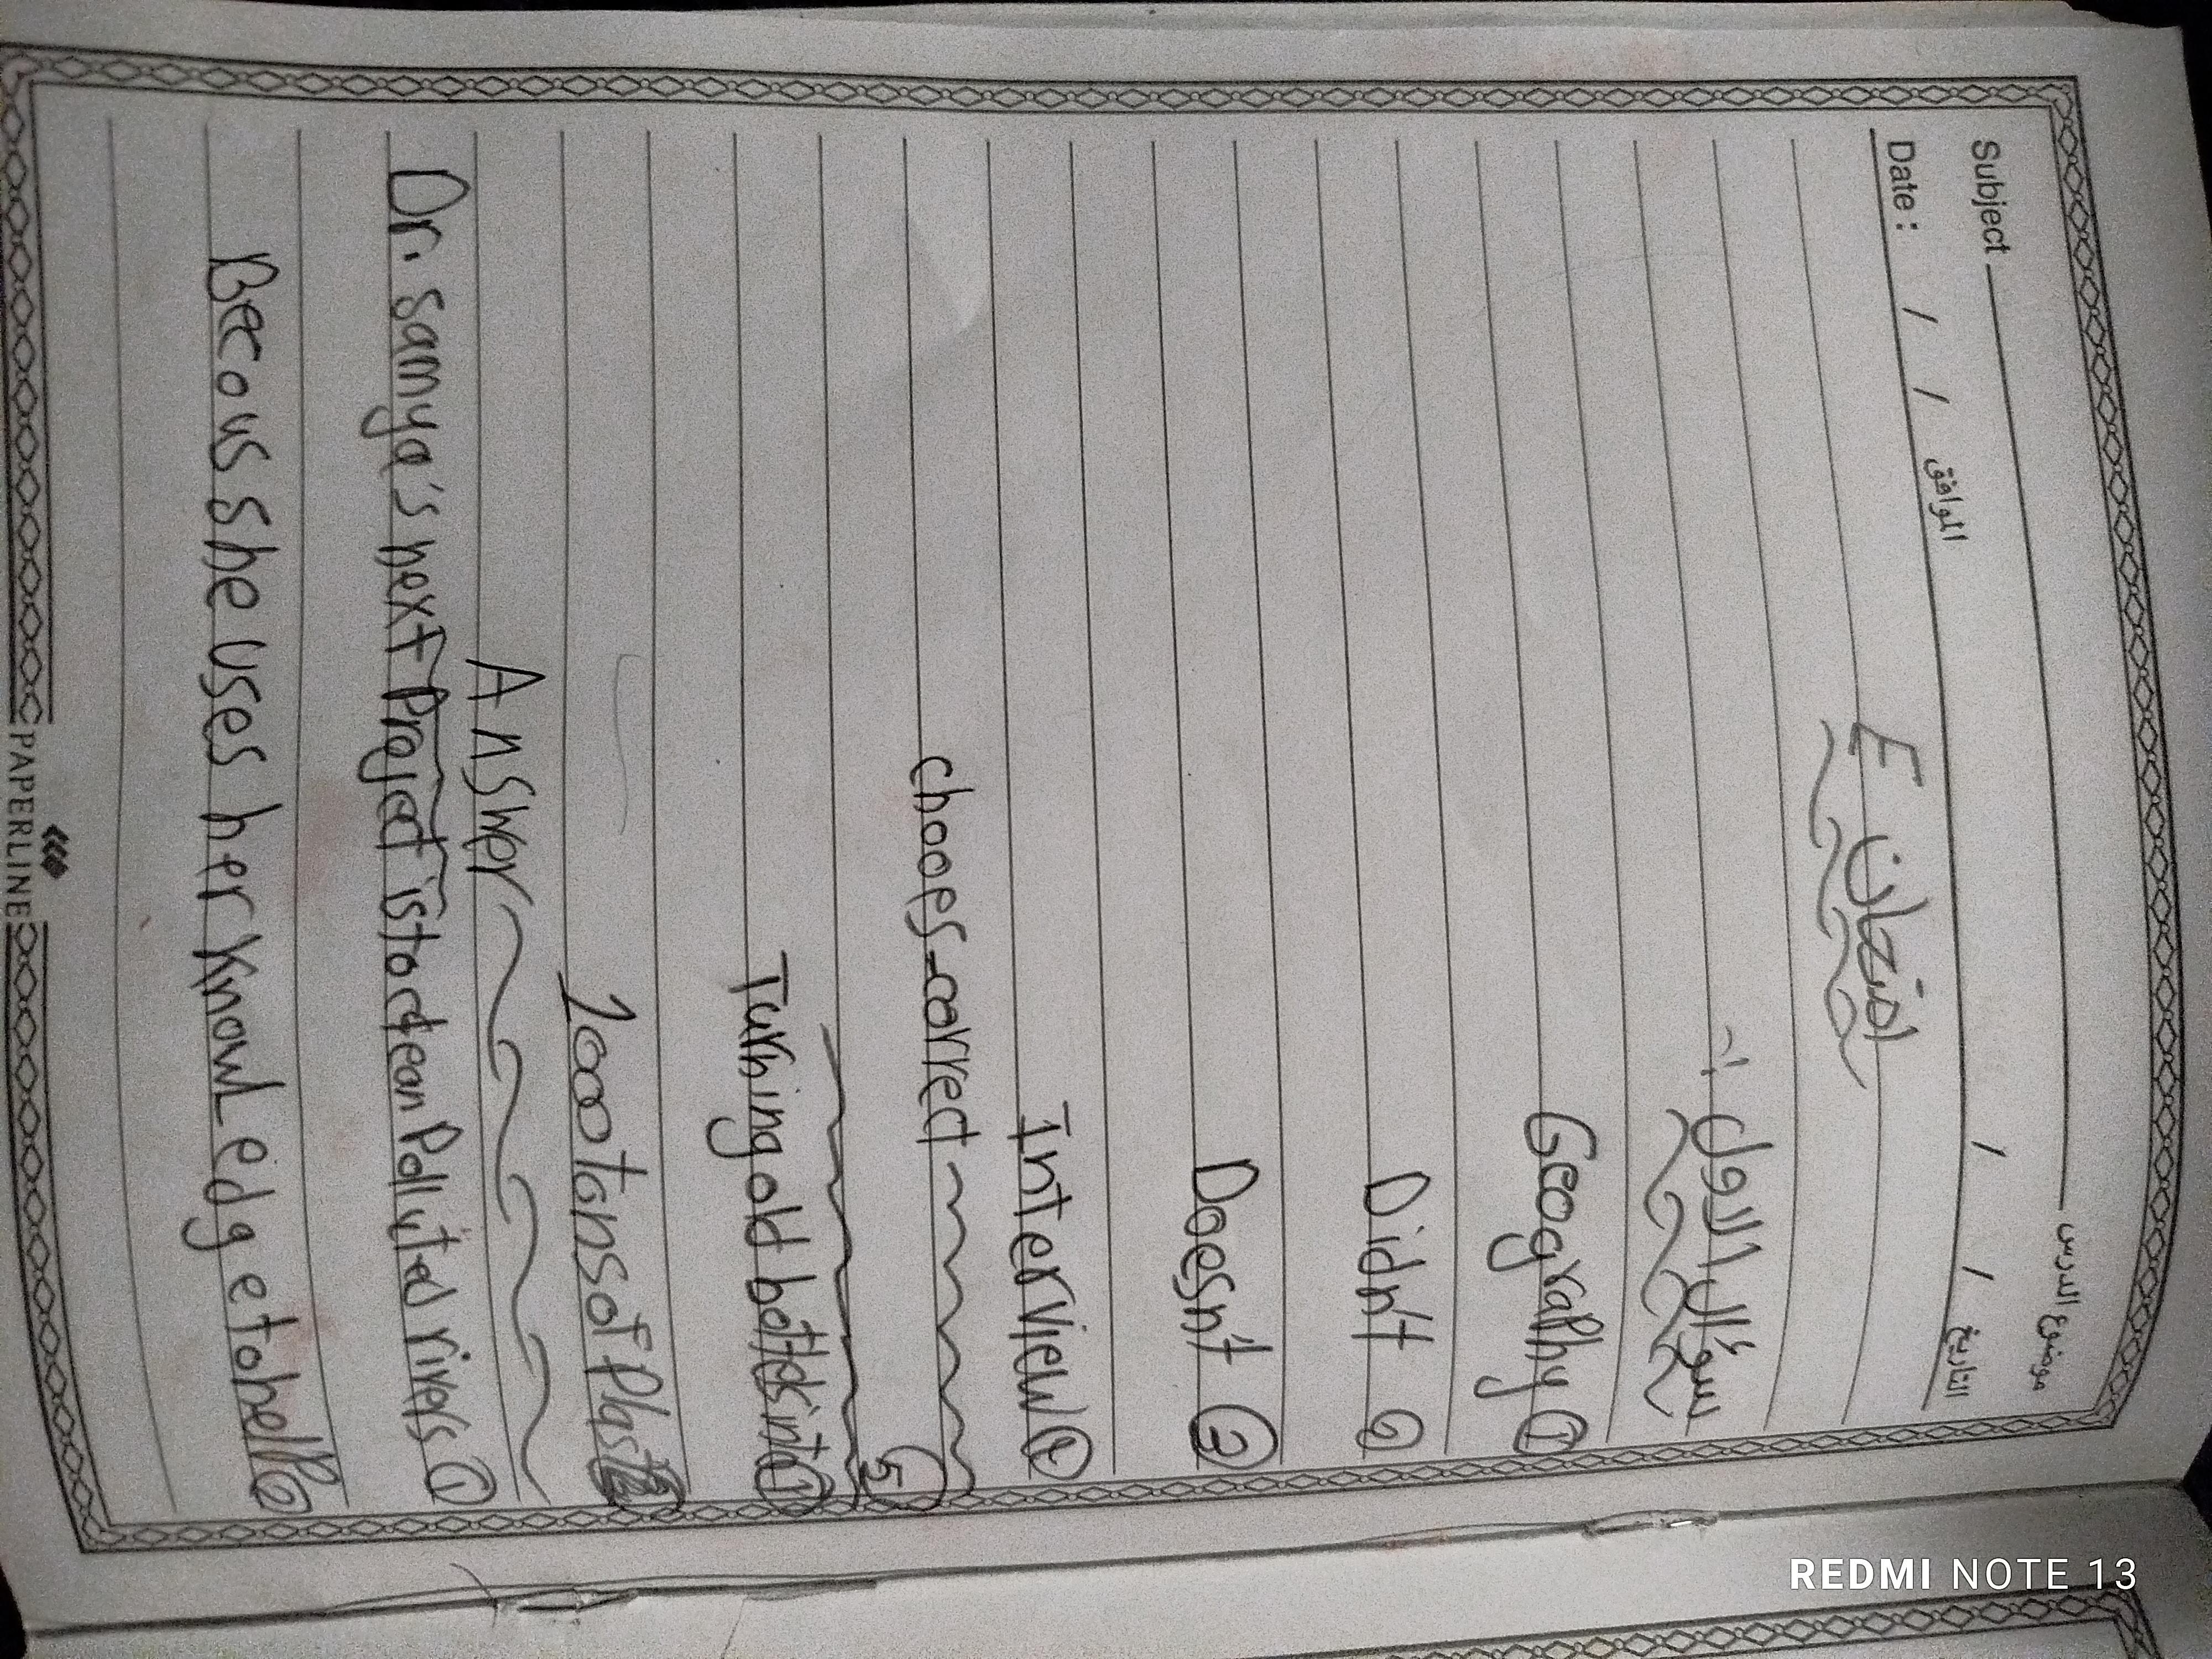 Subject موضوع الدرس
Date : / / الموافق / / التاريخ
امتحان E
سؤال الاول :-
Geography ①
Didn't ②
Doesn't ③
Inter view ④
chooes-correct
5
Turning old bottels into ①
1000 tans of Plastic
Answer
Dr. samya's next Project is to clean Polluted rivers ①
Becous she uses her Knowledge to help ②
PAPERLINE
REDMI NOTE 13